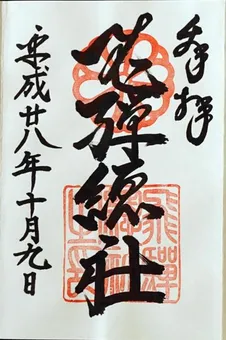 奉拝
飛驒總社
平成廿八年十月九日